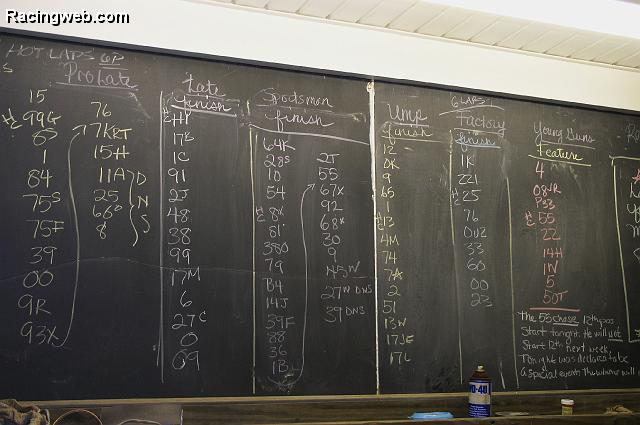 Racingweb.com
HOT LAPS
Pro Late
15
99G
85
1
84
75S
75F
39
00
9R
93X
76
17KRT
15H
11A
25
66
8
DNS
Late
finish
17K
1C
91
2J
48
38
99
17M
6
27C
0
69
Sportsmon
finish
64K
28S
10
54
8X
81
380
79
B4
14J
39F
88
36
1B
2T
55
67X
92
68X
30
9
27W DNS
39 DNS
Ump
finish
12
0K
9
65
1
13
4M
74
7A
2
51
13W
17JE
17C
6 LAPS
Factory
finish
1K
Z21
25
76
0UZ
33
60
00
23
Young Guns
Feature
4
08JR
P53
55
22
14H
1W
5
50T
The 55 chase 12th pos
Start tonight. He will not
Start 12th next week
Tonight was declared to be
a special event. The winner will
WD-40